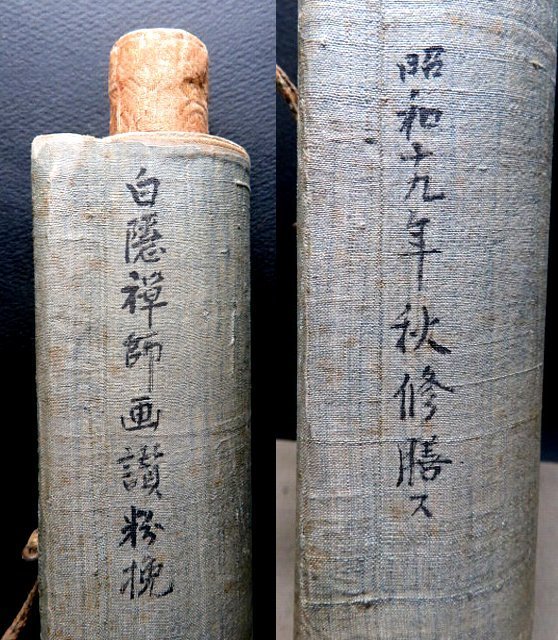 白隱禅師画讃粉挽
昭和十九年秋修膳ス